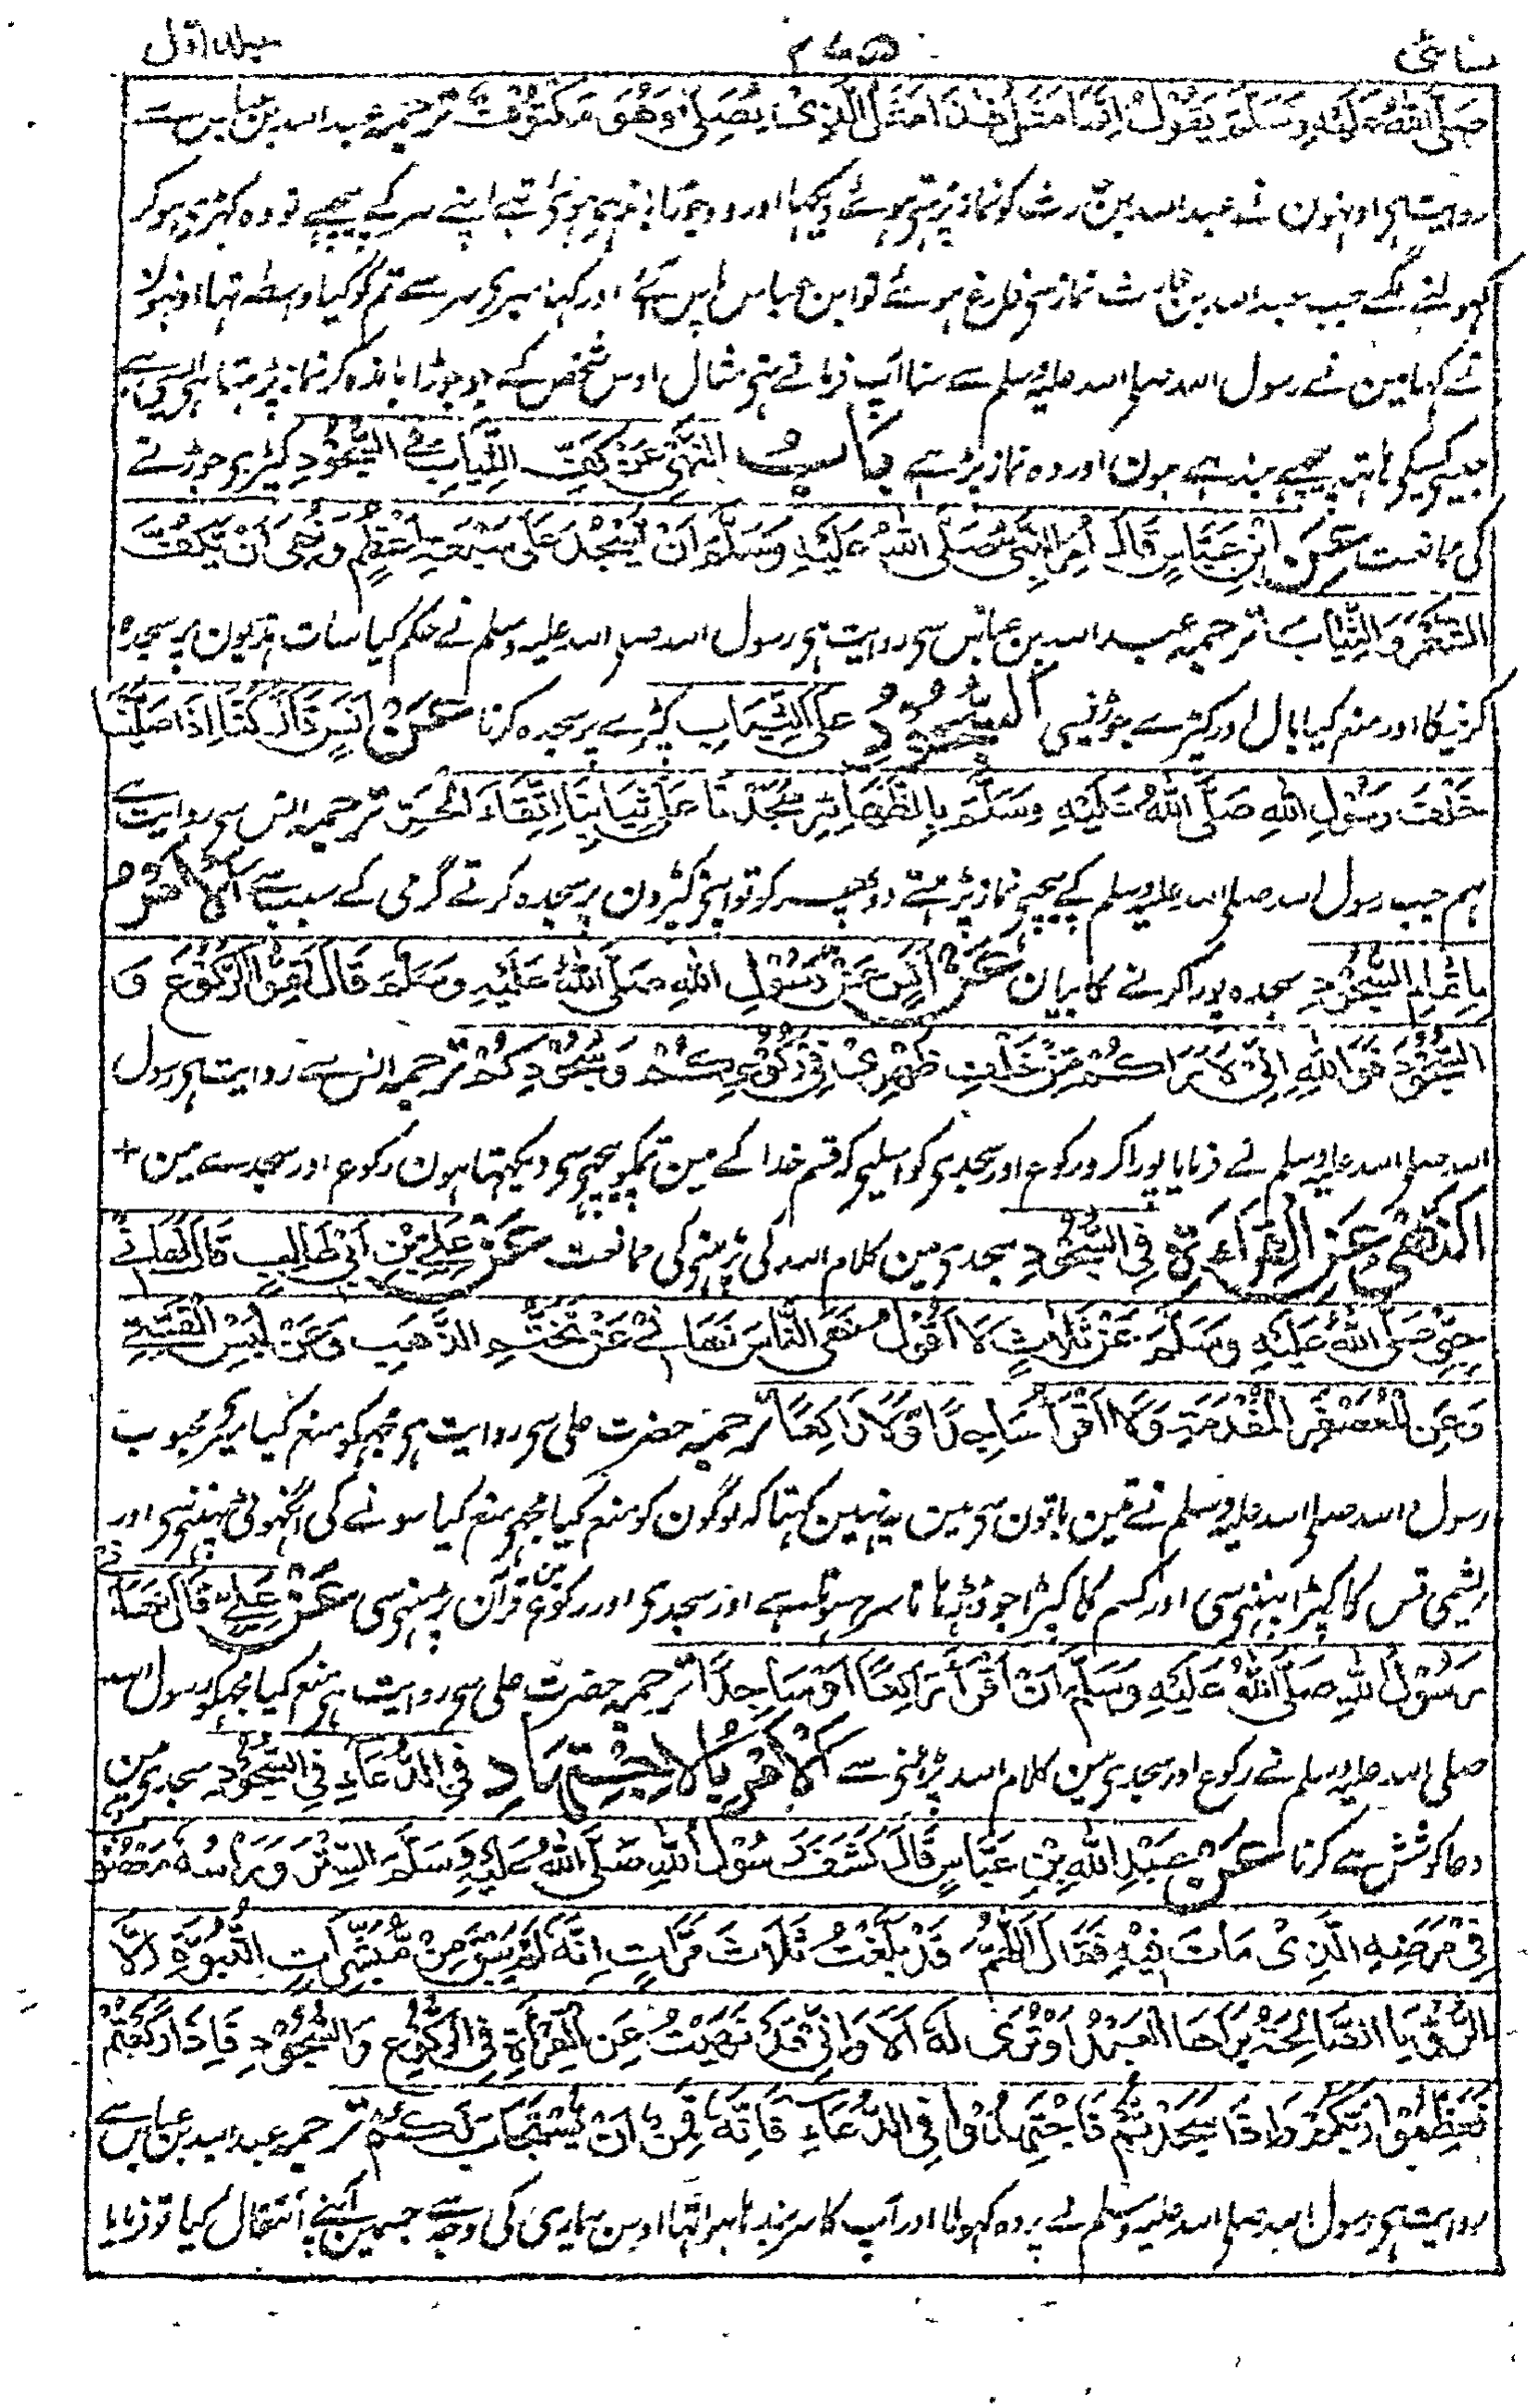 نسائی ۳۷۵ جلد اول
صَلَّى اللهُ عَلَيْهِ وَسَلَّمَ يَقُوْلُ اِنَّمَا مَثَلُ هٰذَا مَثَلُ الَّذِىْ يُصَلِّىْ وَهُوَ مَكْتُوْفٌ ترجمہ عبداللہ بن عباس سے
روایت ہی اونہون نے عبداللہ بن حارث کو نماز پڑہتی ہوئے دیکہا اور وہ جوڑا باندہی ہوئی تہے اپنے سر کے پیچہے تو وہ کہڑے ہو کر
کہولنے لگے جب عبداللہ بن حارث نماز سی فارغ ہوئے تو ابن عباس پاس آئے اور کہا میری سر سے تم کو کیا واسطہ تہا اونہون
نے کہا مین نے رسول اللہ صلی اللہ علیہ وسلم سے سنا آپ فرماتے تہی مثال اوس شخص کے جو جوڑا باندہ کر نماز پڑہتا ہی ایسی ہے
جیسی کسیکی ہاتہ پیچہے بندہے ہون اور وہ نماز پڑہے بَابُ النَّهْىِ عَنْ كَفِّ الثِّيَابِ فِى السُّجُوْدِ کپڑی جوڑنے
کی ممانعت عَنِ ابْنِ عَبَّاسٍ قَالَ اُمِرَ النَّبِىُّ صَلَّى اللهُ عَلَيْهِ وَسَلَّمَ اَنْ يَّسْجُدَ عَلٰى سَبْعَةِ اَعْظُمٍ وَنُهِىَ اَنْ يَّكُفَّ
الشَّعْرَ وَالثِّيَابَ ترجمہ عبداللہ بن عباس سی روایت ہی رسول اللہ صلی اللہ علیہ وسلم نے حکم کیا سات ہڈیون پر سجدہ
کرنیکا اور منع کیا بال اور کپڑے جوڑنیسی اَلسُّجُوْدُ عَلَى الثِّيَابِ کپڑے پر سجدہ کرنا عَنْ اَنَسٍ قَالَ كُنَّا اِذَا صَلَّيْنَا
خَلْفَ رَسُوْلِ اللهِ صَلَّى اللهُ عَلَيْهِ وَسَلَّمَ بِالظَّهَائِرِ سَجَدْنَا عَلٰى ثِيَابِنَا اتِّقَاءَ الْحَرِّ ترجمہ انس سی روایت ہے
ہم جب رسول اللہ صلی اللہ علیہ وسلم کے پیچہی نماز پڑہتے دوپہر کو تو اپنی کپڑون پر سجدہ کرتے گرمی کے سبب سے اَلْاَمْرُ
بِاِتْمَامِ السُّجُوْدِ سجدہ پورا کرنے کا بیان عَنْ اَنَسٍ عَنْ رَسُوْلِ اللهِ صَلَّى اللهُ عَلَيْهِ وَسَلَّمَ قَالَ اَتِمُّوا الرُّكُوْعَ وَ
السُّجُوْدَ فَوَاللهِ اِنِّىْ لَاَرَاكُمْ مِّنْ خَلْفِ ظَهْرِىْ فِىْ رُكُوْعِكُمْ وَسُجُوْدِكُمْ ترجمہ انس سے روایت ہی رسول
اللہ صلی اللہ علیہ وسلم نے فرمایا پورا کرو رکوع اور سجدی کو اسلیی کہ قسم خدا کے مین تمکو پیچہی سی دیکہتا ہون رکوع اور سجدے مین +
اَلنَّهْىُ عَنِ الْقِرَاءَةِ فِى السُّجُوْدِ سجدی مین کلام اللہ کی پڑہنی کی ممانعت عَنْ عَلِىِّ بْنِ اَبِىْ طَالِبٍ قَالَ نَهَانِىْ
حِبِّىْ صَلَّى اللهُ عَلَيْهِ وَسَلَّمَ عَنْ ثَلَاثٍ لَا اَقُوْلُ نَهَى النَّاسَ نَهَانِىْ عَنْ تَخَتُّمِ الذَّهَبِ وَعَنْ لُبْسِ الْقَسِّىِّ
وَعَنِ الْمُعَصْفَرِ الْمُفْدَمَةِ وَلَا اَقْرَأُ سَاجِدًا وَّلَا رَاكِعًا ترجمہ حضرت علی سی روایت ہی مجہکو منع کیا میری محبوب
رسول اللہ صلی اللہ علیہ وسلم نے تین باتون سی مین یہ نہین کہتا کہ لوگون کو منع کیا مجہی منع کیا سونے کی انگہوٹی پہننی سی اور
ریشمی قس کا کپڑا پہننی سی اور کسم کا کپڑا جو ڈہڈہاتا سرخ ہوتا ہے اور سجدی اور رکوع مین قرآن پڑہنی سی عَنْ عَلِىٍّ قَالَ نَهَانِىْ
رَسُوْلُ اللهِ صَلَّى اللهُ عَلَيْهِ وَسَلَّمَ اَنْ اَقْرَأَ رَاكِعًا اَوْ سَاجِدًا ترجمہ حضرت علی سی روایت ہی منع کیا مجہکو رسول اللہ
صلی اللہ علیہ وسلم نے رکوع اور سجدی مین کلام اللہ پڑہنی سے اَلْاَمْرُ بِالْاِجْتِهَادِ فِى الدُّعَاءِ فِى السُّجُوْدِ سجدی مین
دعا کوشش سے کرنا عَنْ عَبْدِ اللهِ بْنِ عَبَّاسٍ قَالَ كَشَفَ رَسُوْلُ اللهِ صَلَّى اللهُ عَلَيْهِ وَسَلَّمَ السِّتْرَ وَرَاْسُهٗ مَعْصُوْبٌ
فِىْ مَرَضِهِ الَّذِىْ مَاتَ فِيْهِ فَقَالَ اَللّٰهُمَّ قَدْ بَلَّغْتُ ثَلَاثَ مَرَّاتٍ اِنَّهٗ لَمْ يَبْقَ مِنْ مُّبَشِّرَاتِ النُّبُوَّةِ اِلَّا
الرُّؤْيَا الصَّالِحَةُ يَرَاهَا الْعَبْدُ اَوْ تُرٰى لَهٗ اَلَا وَاِنِّىْ قَدْ نُهِيْتُ عَنِ الْقِرَاءَةِ فِى الرُّكُوْعِ وَالسُّجُوْدِ فَاِذَا رَكَعْتُمْ
فَعَظِّمُوْا رَبَّكُمْ وَاِذَا سَجَدْتُّمْ فَاجْتَهِدُوْا فِى الدُّعَاءِ فَاِنَّهٗ قَمِنٌ اَنْ يُّسْتَجَابَ لَكُمْ ترجمہ عبداللہ بن عباس سے
روایت ہی رسول اللہ صلی اللہ علیہ وسلم نے پردہ کہولا اور آپ کا سر بندہا ہوا تہا اوس بیماری کی وجہ سے جسمین آپنے انتقال کیا تو فرمایا